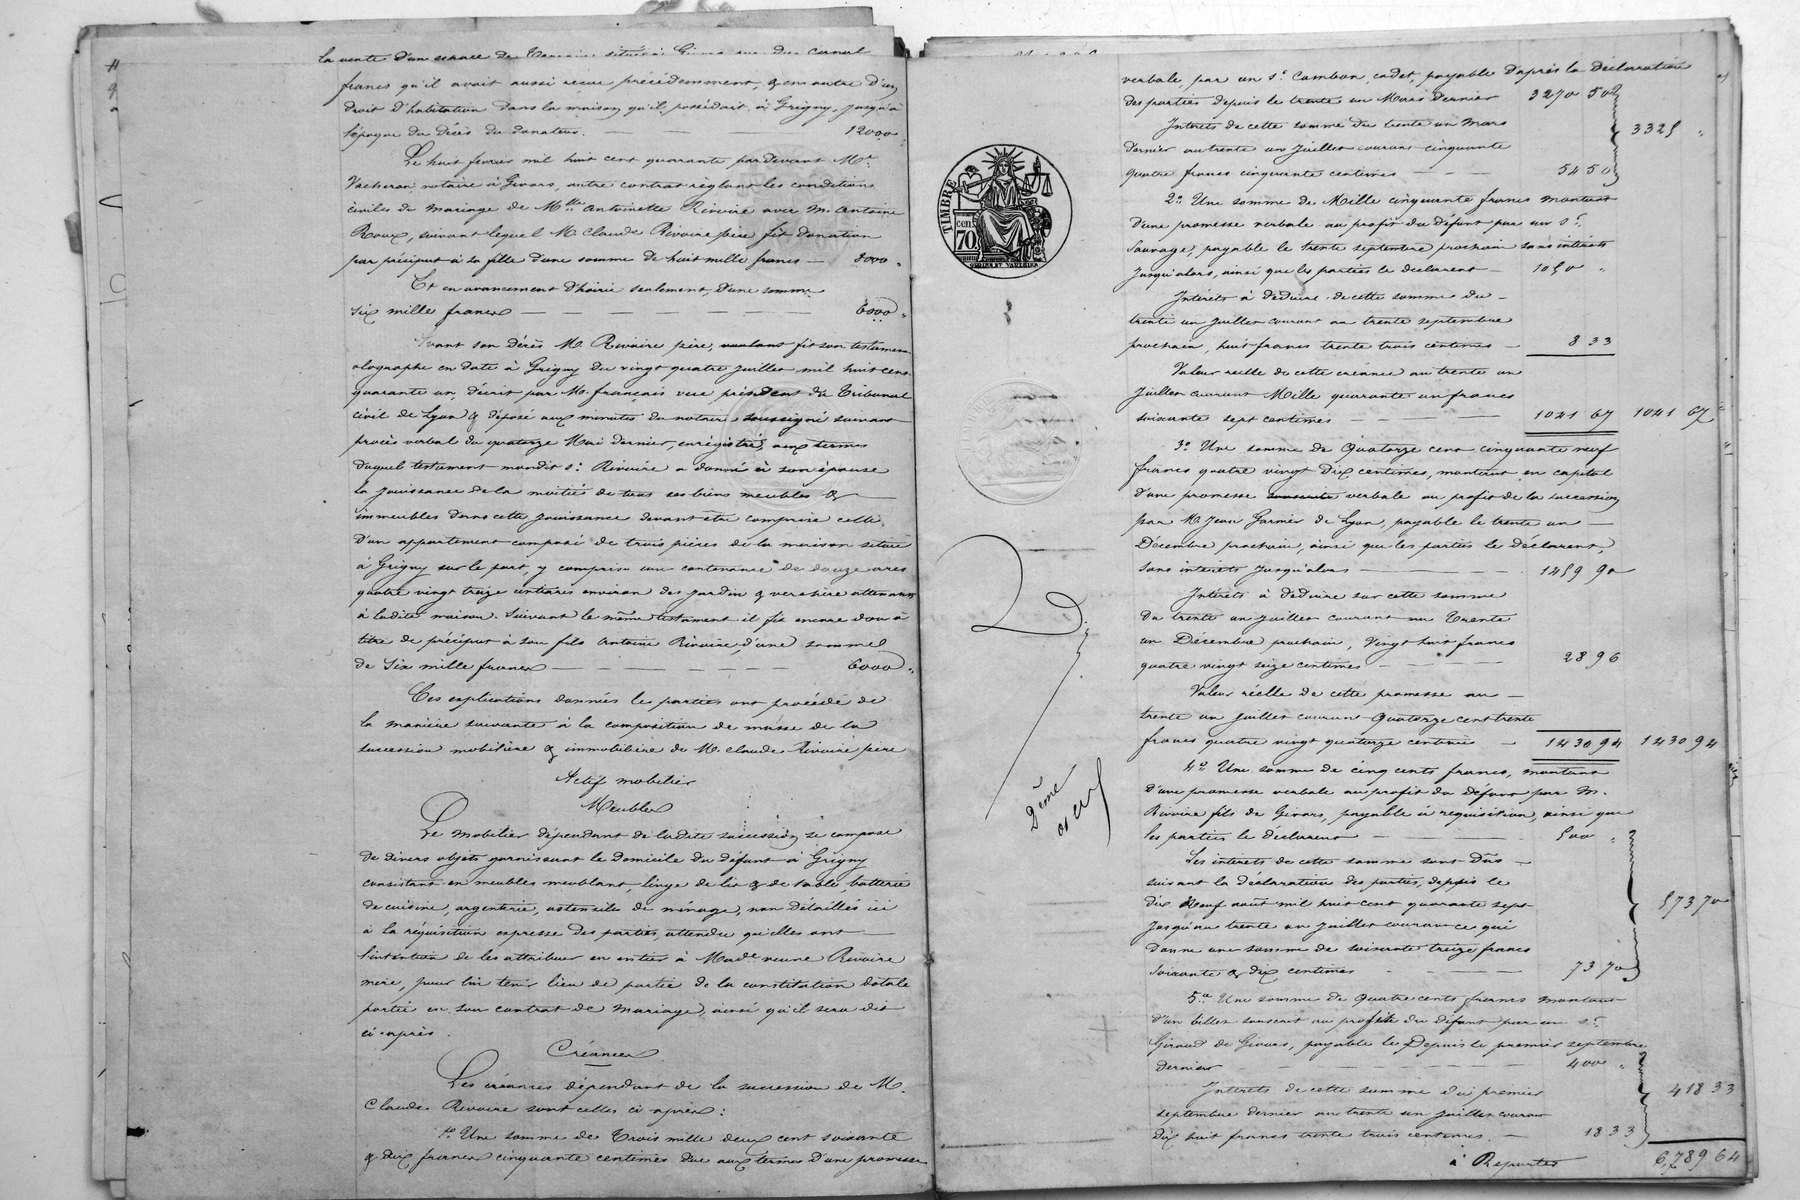 la vente d'un espace de terrain situé à Givors rue du Canal
francs qu'il avait aussi reçue précédemment, & en outre d'un
droit d'habitation dans la maison qu'il possédait à Grigny, jusqu'à
l'époque du décès du donateur. — — 12000 "
Le huit février mil huit cent quarante par devant Me
Vacheron notaire à Givors, autre contrat réglant les conditions
civiles de mariage de Mlle Antoinette Rivoire avec M. Antoine
Roux, suivant lequel M. Claude Rivoire père fit donation
par préciput à sa fille d'une somme de huit mille francs — 8000 "
Et en avancement d'hoirie seulement, d'une somme
six mille francs — — — — — — — 6000 "
Avant son décès M. Rivoire père, voulant fit son testament
olographe en date à Grigny du vingt quatre juillet mil huit cent
quarante un, décrit par M. françois vice président du Tribunal
civil de Lyon & déposé aux minutes du notaire soussigné suivant
procès verbal du quatorze Mai dernier, enregistré, aux termes
duquel testament mondit s. Rivoire a donné à son épouse
la jouissance de la moitié de tous ses biens meubles & —
immeubles dans cette jouissance devant être comprise celle
d'un appartement composé de trois pièces de la maison située
à Grigny sur le port, y compris une contenance de douze ares
quatre vingt treize centiares environ des jardin & verchère attenants
à ladite maison. Suivant le même testament il fit encore don à
titre de préciput à son fils Antoine Rivoire, d'une somme
de six mille francs — — — — — — 6000 "
Ces explications données les parties ont procédé de
la manière suivante à la composition de masse de la
succession mobilière & immobilière de M. Claude Rivoire père
Actif mobilier
Meubles
Le mobilier dépendant de ladite succession se compose
de divers objets garnissant le domicile du défunt à Grigny
consistant en meubles meublant, linge de lit & de table, batterie
de cuisine, argenterie, ustensiles de ménage, non détaillés ici
à la réquisition expresse des parties, attendu qu'elles ont —
l'intention de les attribuer en entier à Made veuve Rivoire
mère, pour lui tenir lieu de partie de la constitution dotale
portée en son contrat de mariage, ainsi qu'il sera dit
ci-après.
Créances
Les créances dépendant de la succession de M.
Claude Rivoire sont celles ci-après:
1o Une somme de Trois mille deux cent soixante
& dix francs cinquante centimes due aux termes d'une promesse
TIMBRE
70 cen
2ème
verbale, par un s. Cambon, cadet, payable d'après la déclaration
des parties depuis le trente un Mars dernier 3270 50
Intérêts de cette somme du trente un mars
dernier au trente un juillet courant cinquante
quatre francs cinquante centimes — — — 54 50
3325 "
2o Une somme de Mille cinquante francs montant
d'une promesse verbale au profit du défunt par un s.
Sauvage, payable le trente septembre prochain sans intérêts
jusqu'alors, ainsi que les parties le déclarent — 1050 "
Intérêts à déduire de cette somme du —
trente un juillet courant au trente septembre
prochain, huit francs trente trois centimes — 8 33
Valeur réelle de cette créance au trente un
juillet courant Mille quarante un francs
soixante sept centimes — — — 1041 67 1041 67
3o Une somme de Quatorze cent cinquante neuf
francs quatre vingt dix centimes, montant en capital
d'une promesse souscrite verbale au profit de la succession
par M. Jean Garnier de Lyon, payable le trente un —
Décembre prochain, ainsi que les parties le déclarent,
sans intérêts jusqu'alors — — — 1459 90
Intérêts à déduire sur cette somme
du trente un juillet courant au trente
un Décembre prochain, vingt huit francs
quatre vingt seize centimes — — — 28 96
Valeur réelle de cette promesse au —
trente un juillet courant Quatorze cent trente
francs quatre vingt quatorze centimes — 1430 94 1430 94
4o Une somme de cinq cents francs, montant
d'une promesse verbale au profit du défunt par M.
Rivoire fils de Givors, payable à réquisition, ainsi que
les parties le déclarent — — 500 "
Les intérêts de cette somme sont dûs —
suivant la déclaration des parties, depuis le
dix neuf août mil huit cent quarante sept
jusqu'au trente un juillet courant ce qui
donne une somme de soixante treize francs
soixante & dix centimes — — — 73 70
573 70
5o Une somme de Quatre cents francs montant
d'un billet souscrit au profit du défunt par un s.
Giraud de Givors, payable le Depuis le premier septembre
dernier — — — — — 400 "
Intérêts de cette somme du premier
septembre dernier au trente un juillet courant
dix huit francs trente trois centimes. — 18 33
418 33
à Reporter 6,789 64